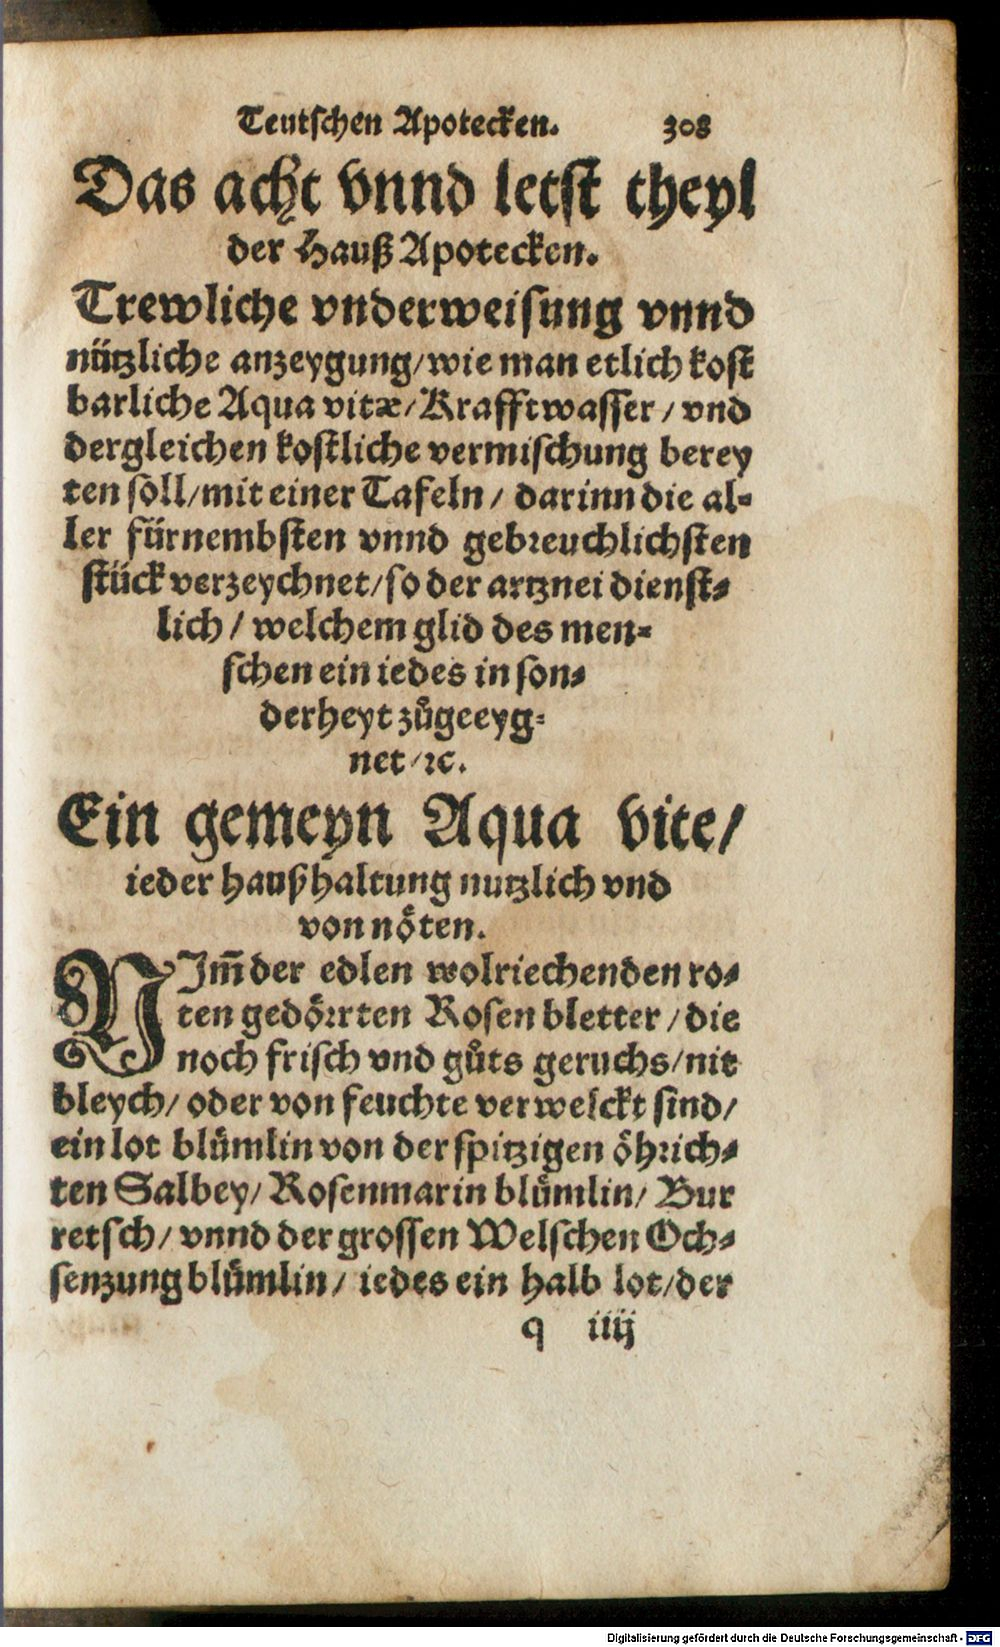 Teutschen Apotecken. 308
Das acht vnnd letst theyl
der Hauß Apotecken.
Trewliche vnderweisung vnnd
nützliche anzeygung/wie man etlich kost
barliche Aqua vitæ/Krafftwasser/vnd
dergleichen kostliche vermischung berey
ten soll/mit einer Tafeln/darinn die al-
ler fürnembsten vnnd gebreuchlichsten
stück verzeychnet/so der artznei dienst-
lich/welchem glid des men-
schen ein iedes in son-
derheyt zůgeeyg-
net/ꝛc.
Ein gemeyn Aqua vite/
ieder haußhaltung nutzlich vnd
von nöten.
NIm̄ der edlen wolriechenden ro-
ten gedörrten Rosen bletter/die
noch frisch vnd gůts geruchs/nit
bleych/oder von feuchte verwelckt sind/
ein lot blümlin von der spitzigen öhrich-
ten Salbey/Rosenmarin blümlin/Bur
retsch/vnnd der grossen Welschen Och-
senzung blümlin/iedes ein halb lot/der
q iiij
Digitalisierung gefördert durch die Deutsche Forschungsgemeinschaft - DFG